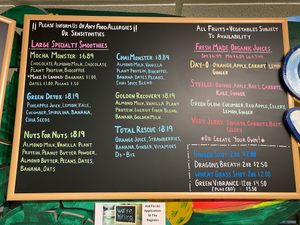 !! Please Inform Us Of Any Food Allergies !!
Or Sensitivities
Large Specialty Smoothies
Mocha Monster $8.49
Chocolate Almond Milk, Chocolate
Plant Protein, Biocoffee
*Make It Loaded! (Bananas $1.00,
Dates $1.00, Peanut $.50)
Green Detox $8.49
Pineapple Juice, Lemon, Kale,
Cucumber, Spirulina, Banana,
Chia Seeds
Nuts For Nuts $8.49
Almond Milk, Vanilla Plant
Protein, Peanut Butter Powder,
Almond Butter, Pecans, Dates,
Banana, Oats
ChaiMonster $8.49
Almond Milk, Vanilla
Plant Protein, Biocoffee,
Banana, Dates, Pecans,
Chai Spice Blend
Golden Recovery $8.49
Almond Milk, Vanilla Plant
Protein, Energy Blend, Honey,
Banana, Golden Milk
Total Rescue $8.49
Orange Juice, Strawberries,
Banana, Ginger, Vitamins
D3+B12
All Fruits + Vegetables Subject
To Availability
Fresh Made Organic Juices
Day-O Orange, Apple, Carrot, Lemon,
Ginger
Apple, Beet, Carrots,
Kale, Ginger
Green Glow Cucumber, Red Apple, Celery,
Lemon, Ginger
Very Jerry Tomato, Carrots, Beet,
Celery
*Or Create Your Own!*
Ginger Shot 2oz $2.00
Dragons Breath 2oz $2.50
Wheat Grass Shot 2oz $2.00
Green Vibrance 12oz $4.50
(Plus CBD) $5.50
we're
hiring
Ask For An
Application
At The
Register